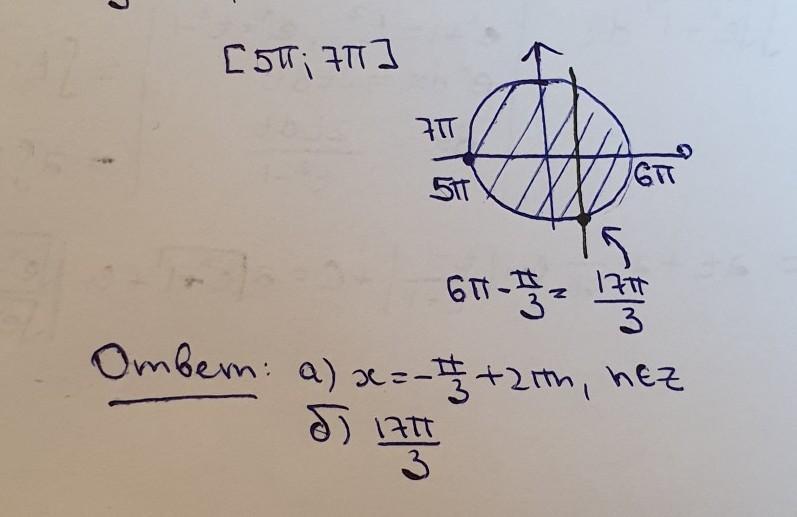 [5π; 7π]
7π
5π
6π
6π - π/3 = 17π/3
Ответ: а) x = -π/3 + 2πn, n∈Z
б) 17π/3